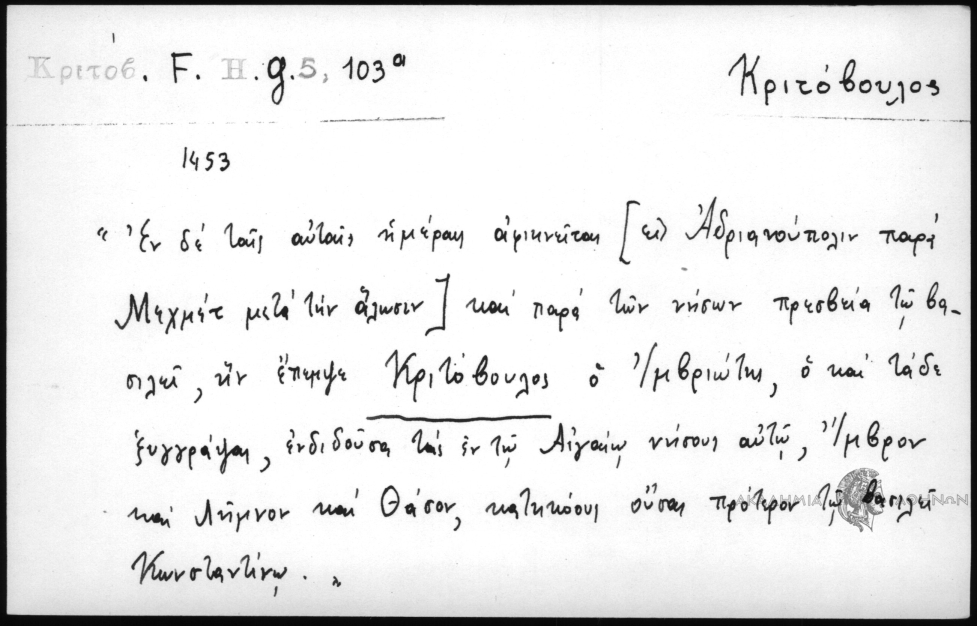 Κριτόβ. F. H. g. 5, 103ᵃ
Κριτόβουλος
1453
“ Ἐν δέ ταῖς αὐταῖς ἡμέραις ἀφικνεῖται [εἰς Ἀδριανούπολιν παρά
Μεχμέτ μετά τήν ἅλωσιν] καί παρά τῶν νήσων πρεσβεία τῷ βα-
σιλεῖ, ἥν ἔπεμψε Κριτόβουλος ὁ Ἰμβριώτης, ὁ καί τάδε
ξυγγράψας, ἐνδιδοῦσα τάς ἐν τῷ Αἰγαίῳ νήσους αὐτῷ, Ἴμβρον
καί Λῆμνον καί Θάσον, κατηκόους οὔσας πρότερον τῷ βασιλεῖ
Κωνσταντίνῳ. ”
ΑΚΑΔΗΜΙΑ ΑΘΗΝΩΝ